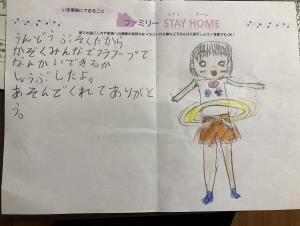 いま家族にできること
ファミリー STAY HOME
うんどうぶそくだから
かぞくみんなでフラフープで
なんかいできるか
しょうぶしたよ。
あそんでくれてありがと
う。